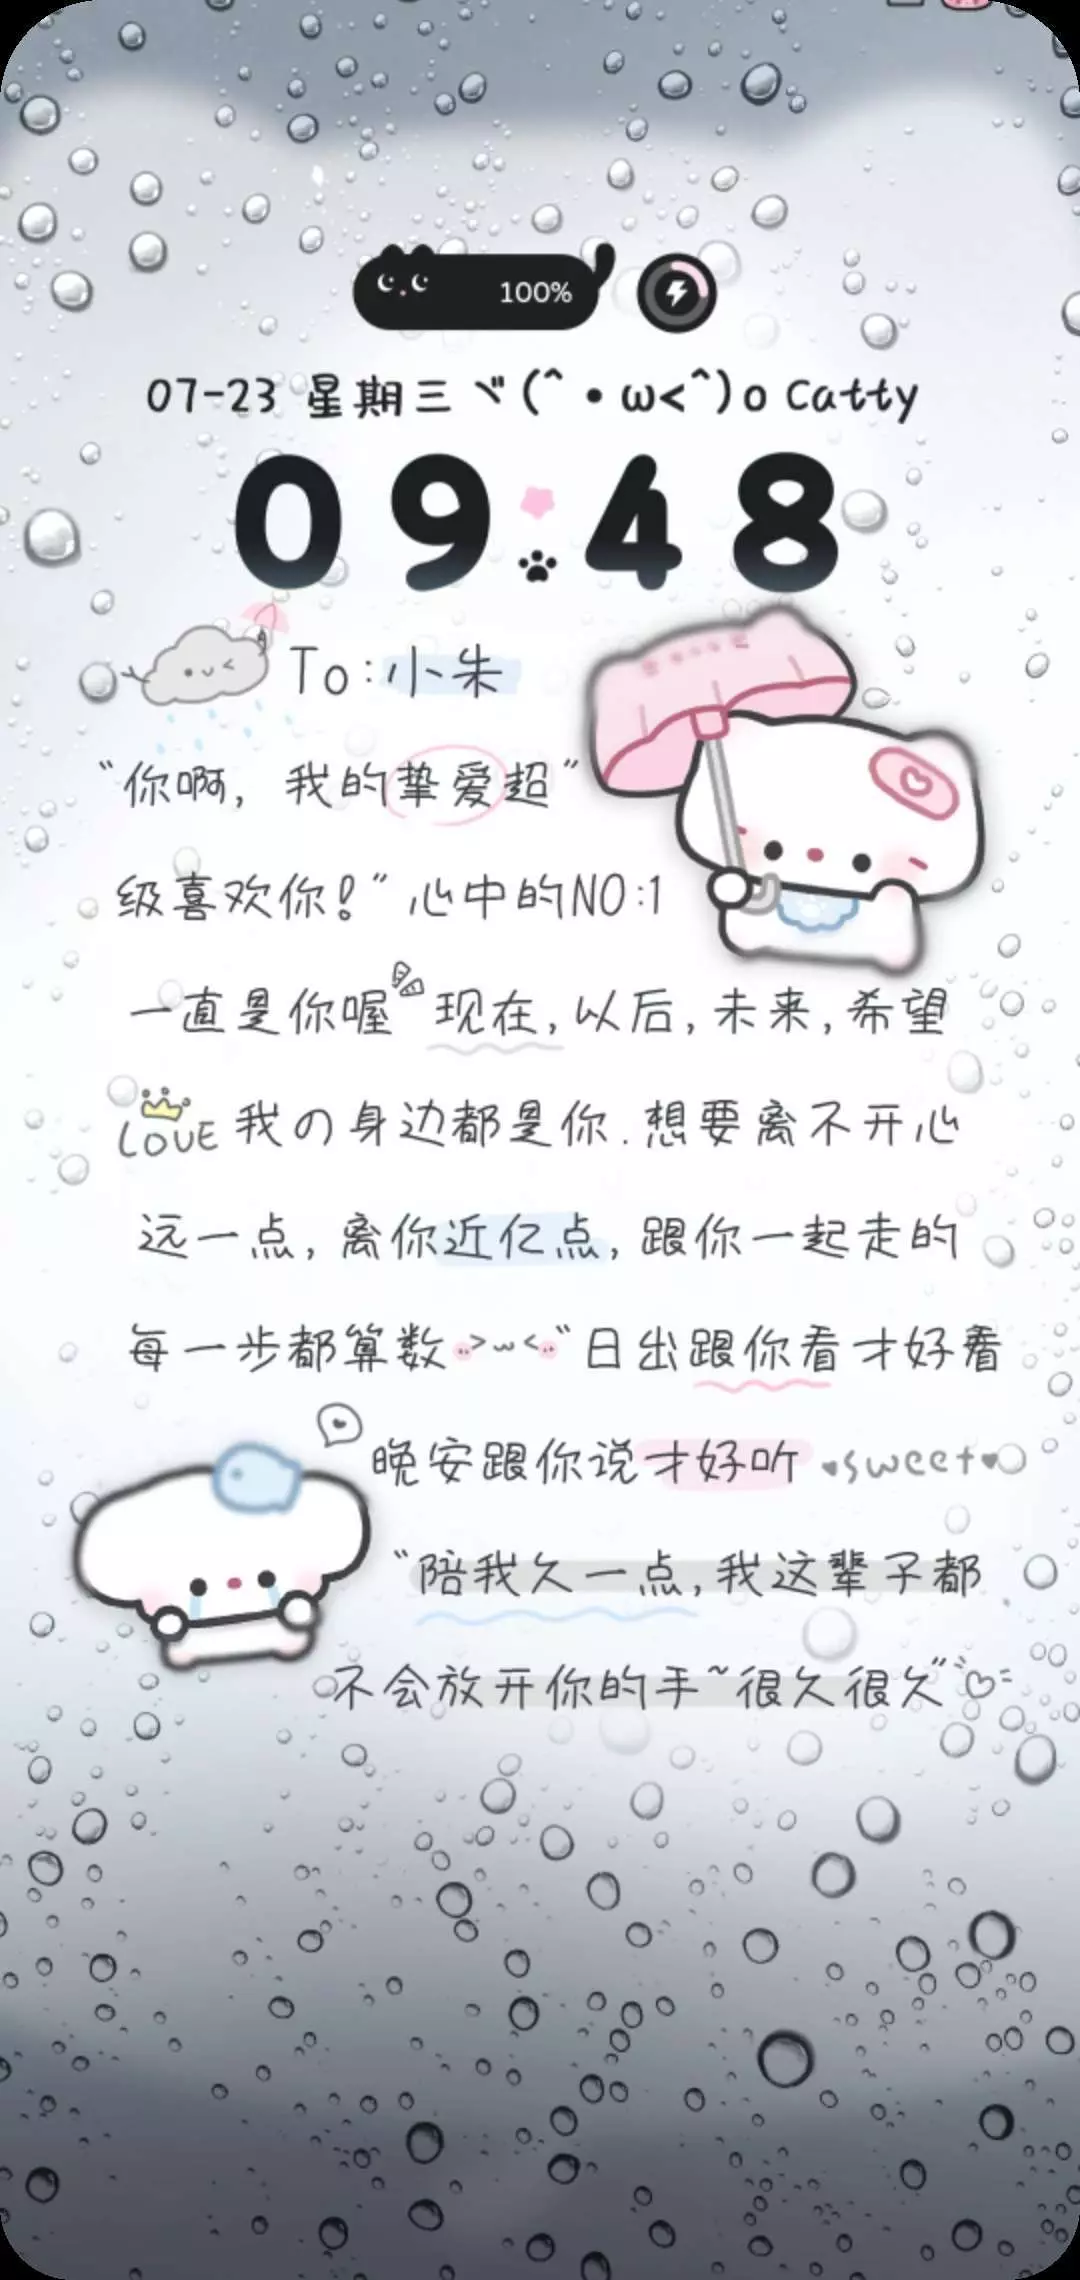 100%
07-23 星期三ヾ(^•ω<^)o Catty
09:48
To:小朱
“你啊,我的挚爱超”
级喜欢你!”心中的NO:1
一直是你喔 现在,以后,未来,希望
LOVE 我の身边都是你.想要离不开心
远一点,离你近亿点,跟你一起走的
每一步都算数 >ω<”日出跟你看才好看
晚安跟你说才好听 ♥sweet♥
“陪我久一点,我这辈子都
不会放开你的手~很久很久”